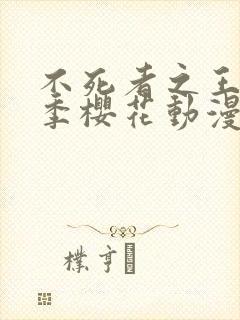 不死者之王
季櫻花動漫
樸亨